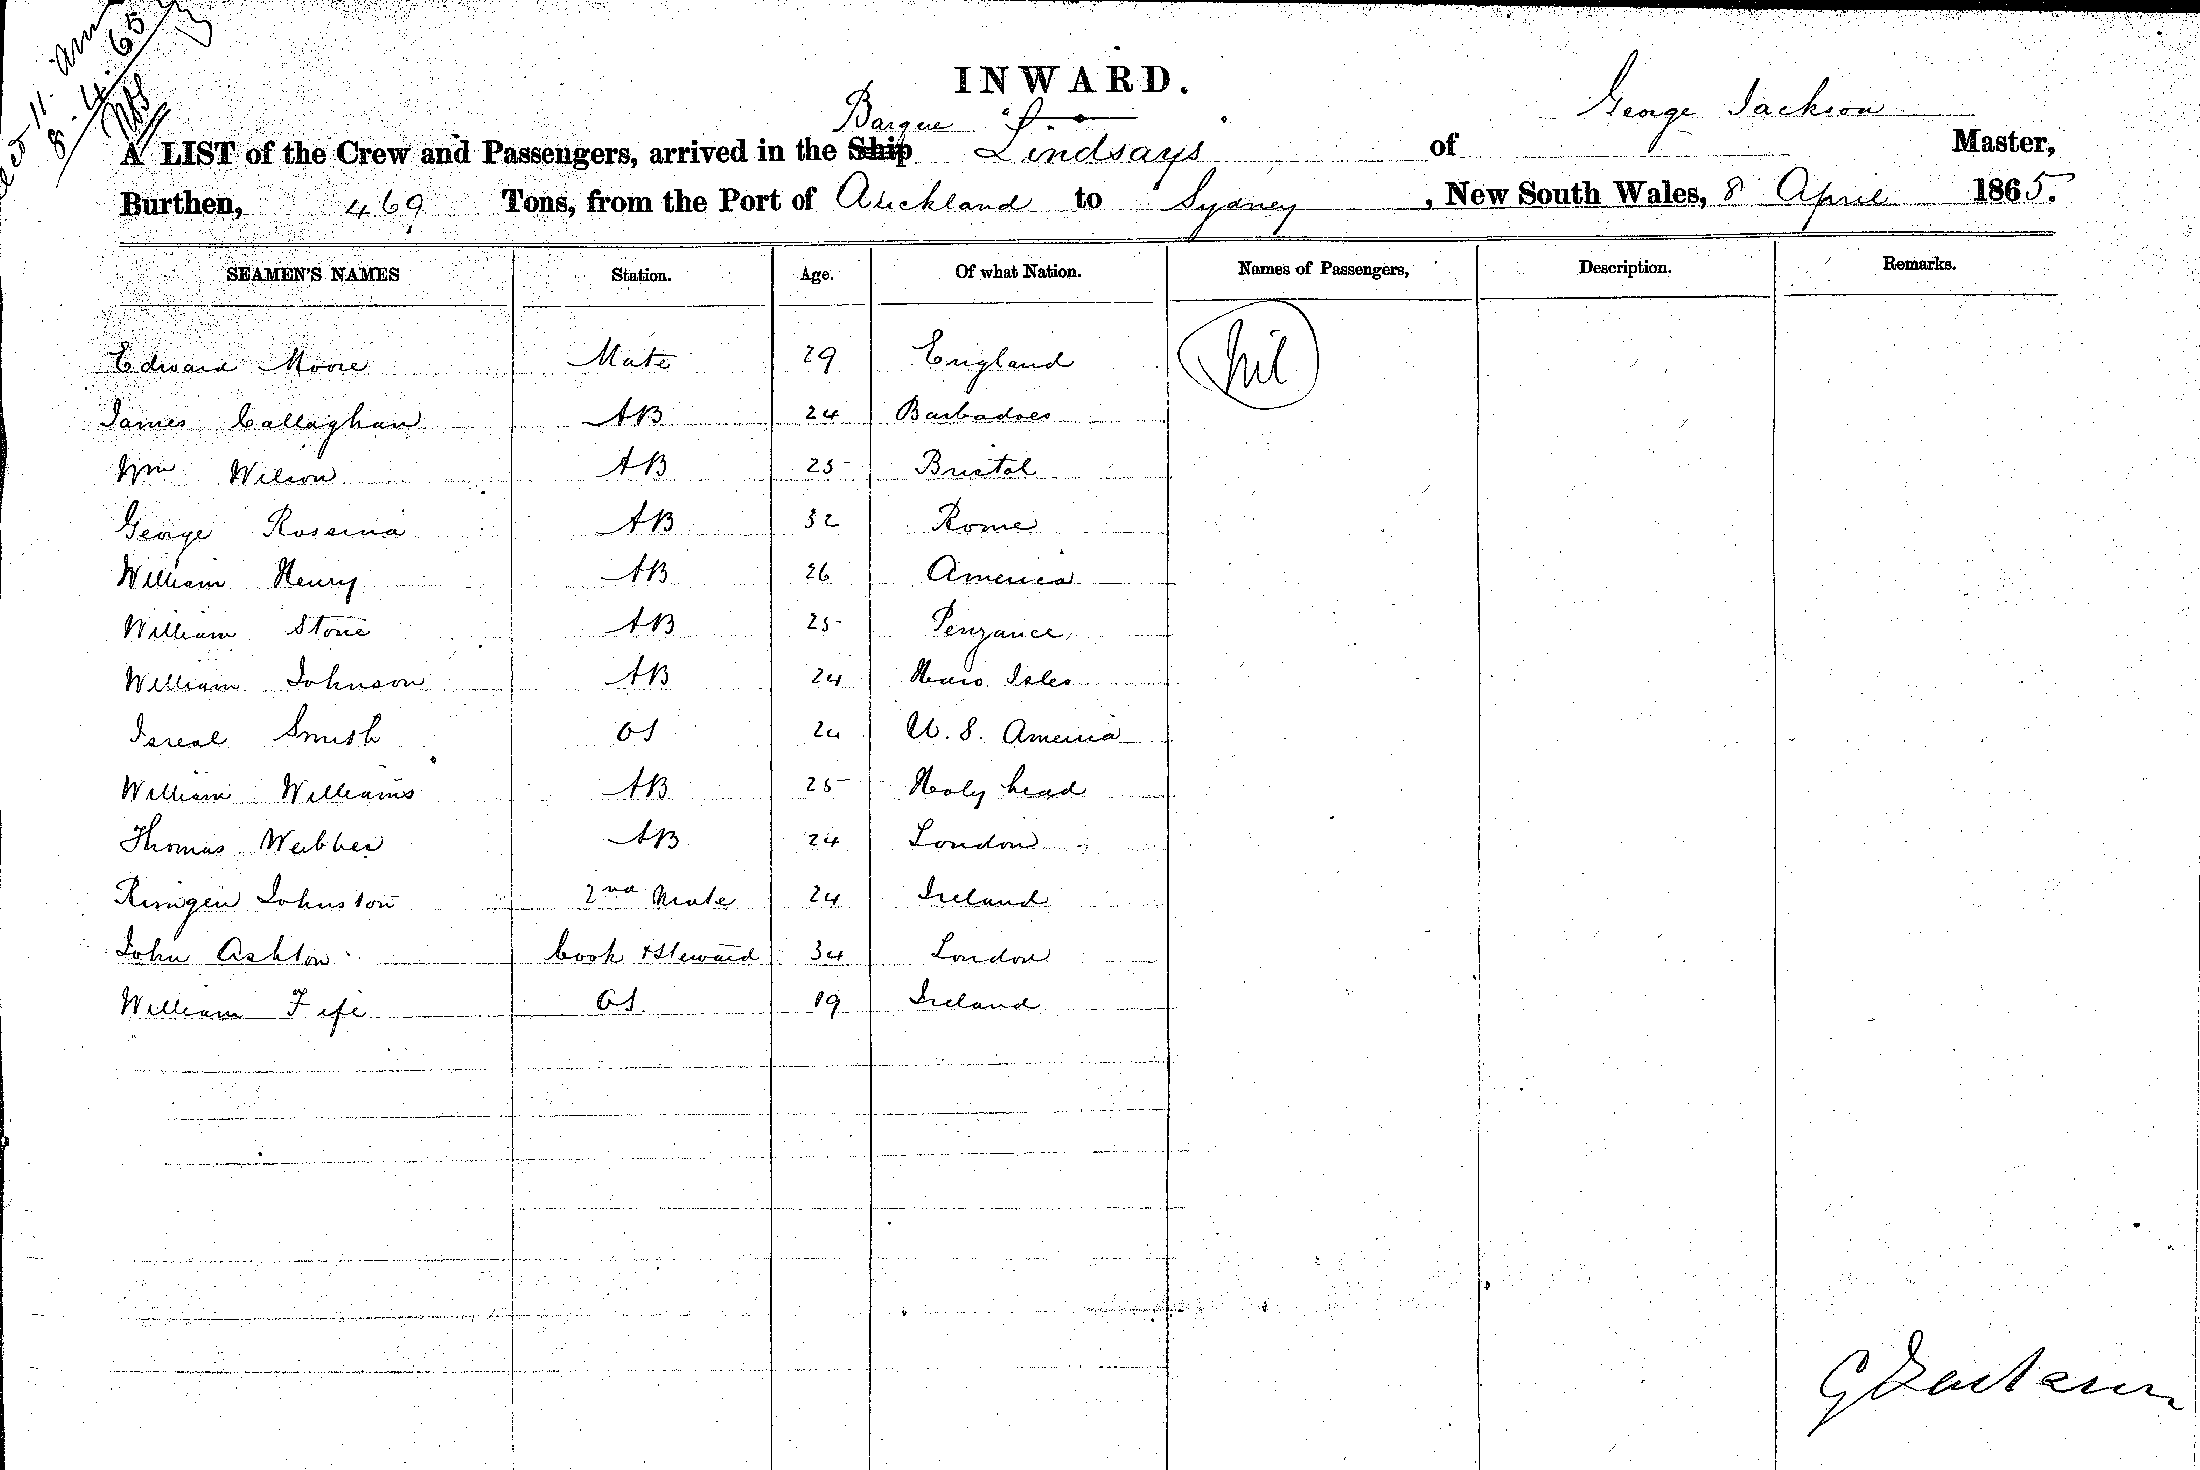 11
8.4.65
INWARD.
Barque
George Jackson
A LIST of the Crew and Passengers, arrived in the Ship Lindsays of Master,
Burthen, 469 Tons, from the Port of Auckland to Sydney, New South Wales, 8 April 1865.
SEAMEN'S NAMES Station. Age. Of what Nation. Names of Passengers, Description. Remarks.
Edward Moore Mate 29 England Nil
James Callaghan AB 24 Barbadoes
Wm Wilson AB 25 Bristol
George Rossina AB 32 Rome
William Henry AB 26 America
William Stone AB 25 Penzance
William Johnson AB 24 Isles
Isreal Smith OS 24 U. S. America
William Williams AB 25 Holy head
Thomas Webber AB 24 London
Johnston 2nd Mate 24 Ireland
John Ashton Cook & Steward 34 London
William Fife OS 19 Ireland
G Jackson